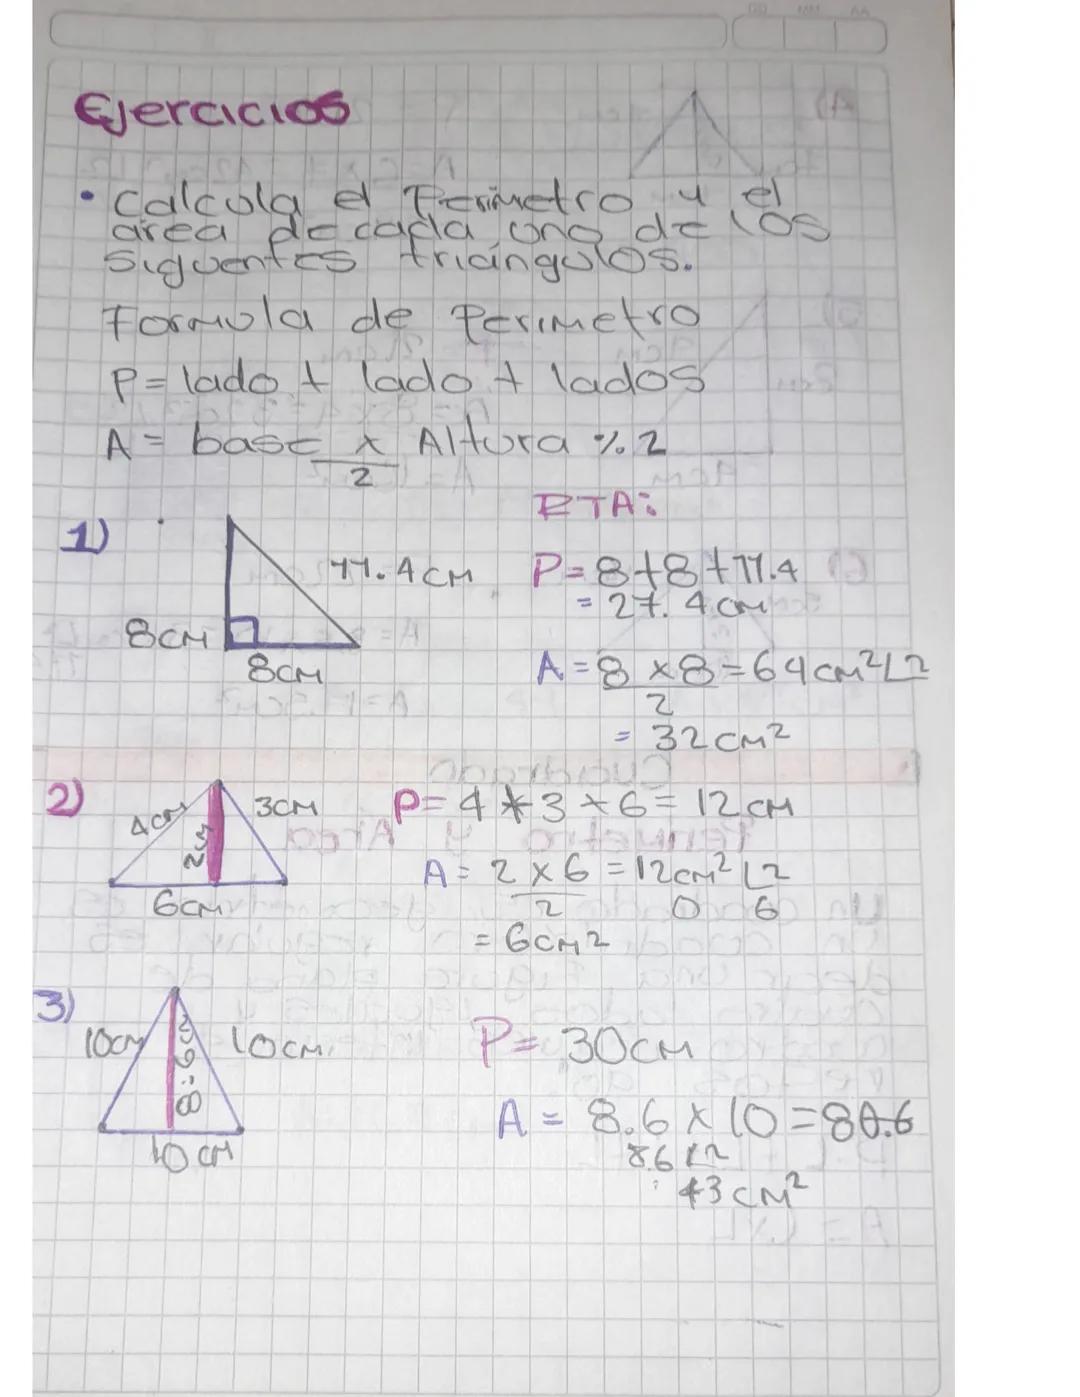 DD MM AA
Ejercicios
• Calcula el Perimetro y el
área de cada uno de los
siguentes triángulos.
Formula de Perimetro
P = lado + lado + lados
A = base x Altura % 2
2
RTA:
1)
11.4cm
8cm
8cm
P = 8+8+11.4
= 27.4cm
A = 8 x 8 = 64cm² L2
2
= 32cm²
2)
4cm
2cm
3cm
6cm
P = 4 + 3 + 6 = 12cm
A = 2 x 6 = 12cm² L2
2 0 6
= 6cm²
3)
10cm
8.6cm
10cm
10cm
P = 30cm
A = 8.6 x 10 =
86 L2
43cm²